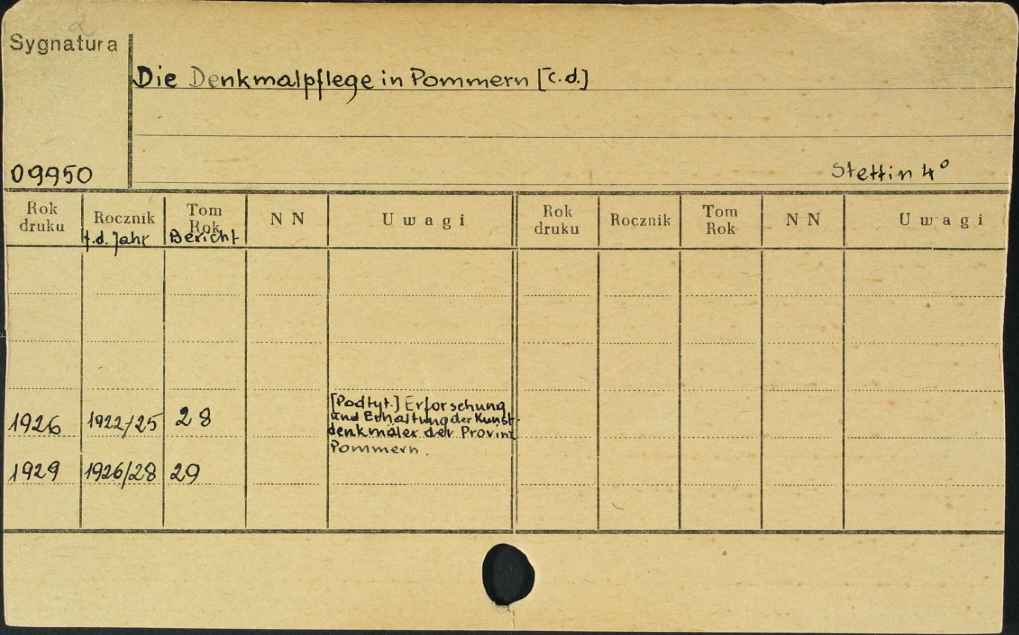 Sygnatura
Die Denkmalpflege in Pommern [c.d.]
09950
Stettin 4°
Rok druku Rocznik Tom Rok N N Uwagi Rok druku Rocznik Tom Rok N N Uwagi
f.d. Jahr Bericht
1926 1922/25 28 [Podtyt.] Erforschung
und Erhaltung der Kunst-
denkmäler der Provinz
Pommern.
1929 1926/28 29